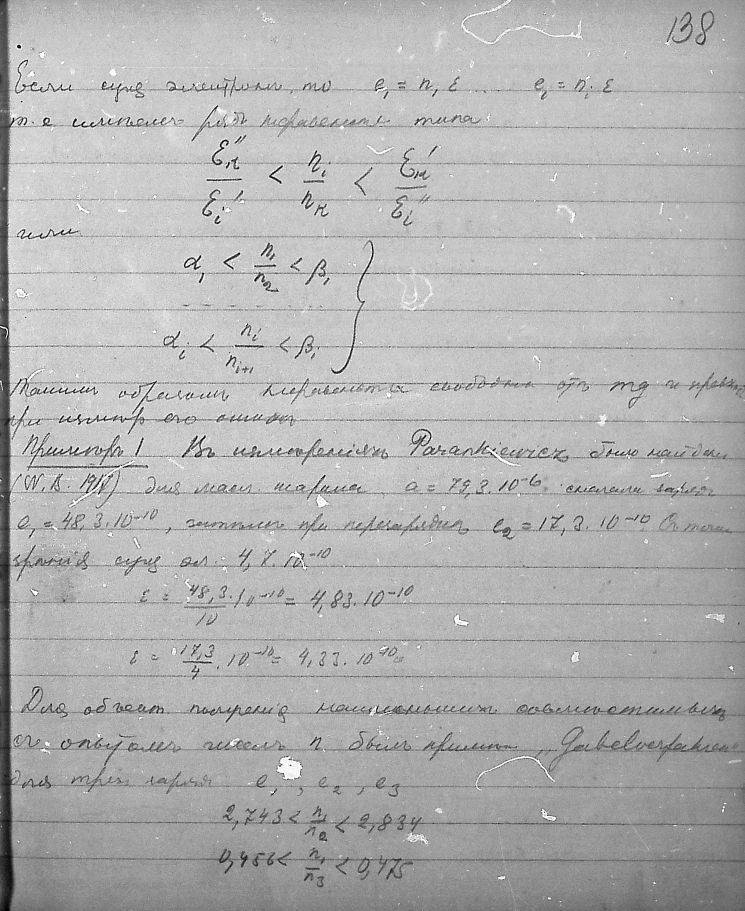 138
Если сущ электроны, то e₁ = n₁ ε .... eᵢ = nᵢ ε
т.е имеемъ рядъ неравенствъ типа:
ℰₖ″/ℰᵢ′ < nᵢ/nₖ < ℰₖ′/ℰᵢ″
или
α₁ < n₁/n₂ < β₁ }
- - - - - -
αᵢ < nᵢ/nᵢ₊₁ < βᵢ
Такимъ образомъ неравенства свободны отъ mg и
при измѣр его ошибки
Примѣръ 1 Въ измѣреніяхъ Parankiewicz было найдено
(W.B. 1917) для масл шарика a = 79,3.10⁻⁶ сначала зарядъ
e₁ = 48,3.10⁻¹⁰, затѣмъ при перезарядкѣ e₂ = 17,3.10⁻¹⁰ Съ точки
зрѣнія сущ эл. 4,7.10⁻¹⁰
ε = 48,3/10 .10⁻¹⁰ = 4,83.10⁻¹⁰
ε = 17,3/4 .10⁻¹⁰ = 4,33.10⁻¹⁰
Для объект полученія наименьшихъ совмѣстимыхъ
съ опытомъ чиселъ n былъ примѣн „Gabelverfahren"
для трех заряд e₁, e₂, e₃
2,743 < n₁/n₂ < 2,834
0,456 < n₁/n₃ < 0,475